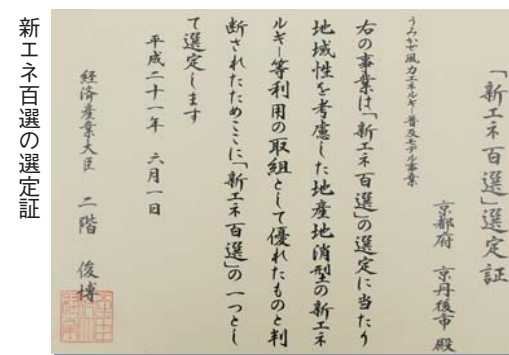 「新エネ百選」選定証
京都府 京丹後市 殿
うみかぜ風力エネルギー普及モデル事業
右の事業は「新エネ百選」の選定に当たり
地域性を考慮した地産地消型の新エネ
ルギー等利用の取組として優れたものと判
断されたためここに「新エネ百選」の一つとし
て選定します
平成二十一年 六月一日
経済産業大臣 二階 俊博
新エネ百選の選定証